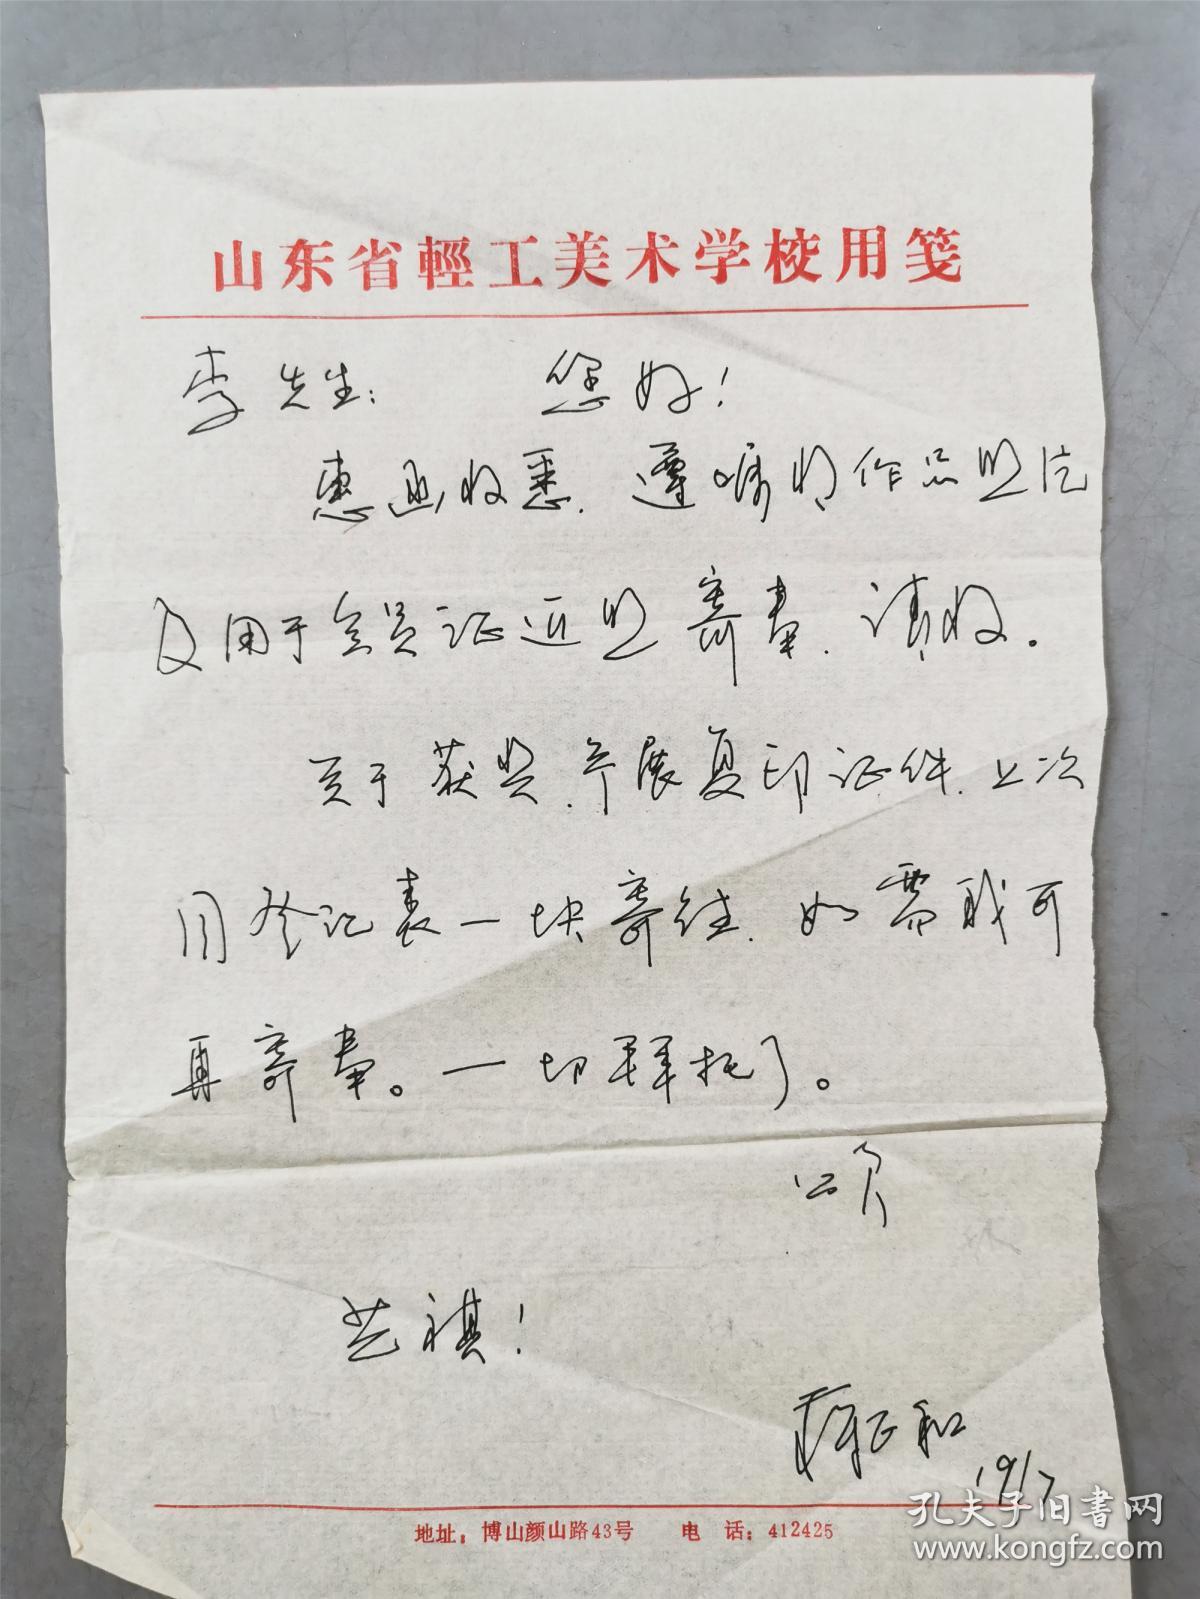 山东省輕工美术学校用笺
李先生： 您好！
惠函收悉．遵嘱将作品照片
及用于会员证近照寄奉．请收。
关于获奖．参展复印证件．上次
同登记表一块寄往．如需我可
再寄奉。一切拜托了。
颂
艺祺！
正和
19/7
地址：博山颜山路43号 电 话：412425
孔夫子旧书网
www.kongfz.com